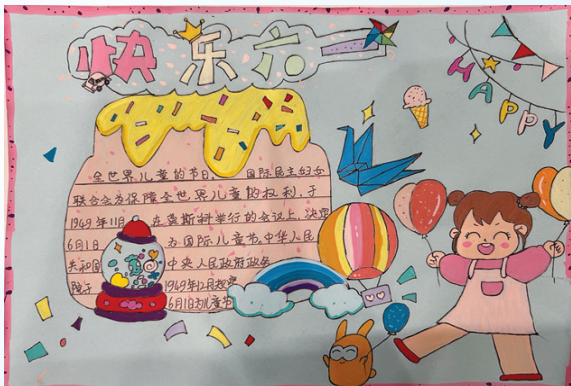 快乐六一
HAPPY
全世界儿童的节日, 国际民主妇女
联合会为保障全世界儿童的权利,于
1949年11月 在莫斯科举行的会议上,决定
6月1日 为国际儿童节。中华人民
共和国 中央人民政府政务
院于 1949年12月规定
6月1日为儿童节